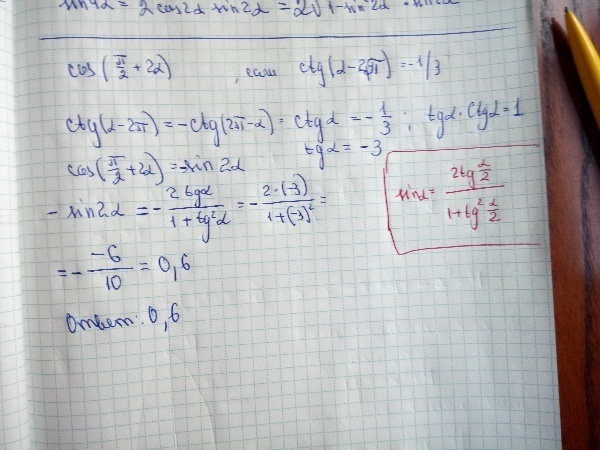 sin4α = 2 cos2α sin2α = 2√1-sin²2α · sin2α
cos(π/2 + 2α) , если ctg(α-2π) = -1/3
ctg(α-2π) = -ctg(2π-α) = ctgα = -1/3 ; tgα·Ctgα = 1
tgα = -3
cos(π/2 + 2α) = -sin2α
-sin2α = -2tgα/1+tg²α = -2·(-3)/1+(-3)² =
sinα = 2tg α/2 / 1+tg² α/2
= - -6/10 = 0,6
Ответ: 0,6